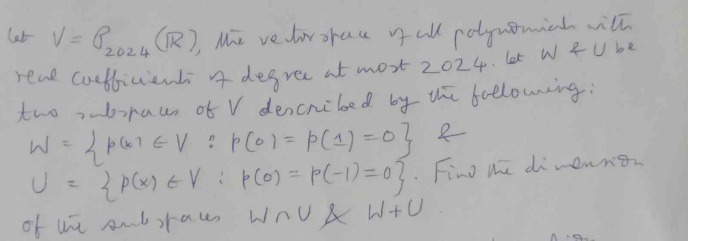 let V = P₂₀₂₄(ℝ), the vector space of all polynomials with
real coefficients of degree at most 2024. let W & U be
two subspaces of V described by the following:
W = { p(x) ∈ V : p(0) = p(1) = 0 } &
U = { p(x) ∈ V : p(0) = p(-1) = 0 }. Find the dimension
of the subspaces W∩U & W+U